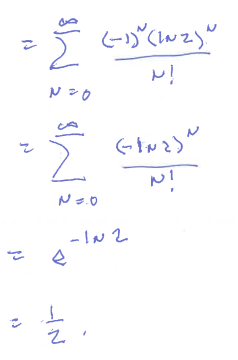 = ∞ Σ N=0 (-1)^N (ln 2)^N / N!
= ∞ Σ N=0 (-ln 2)^N / N!
= e^-ln 2
= 1/2 .